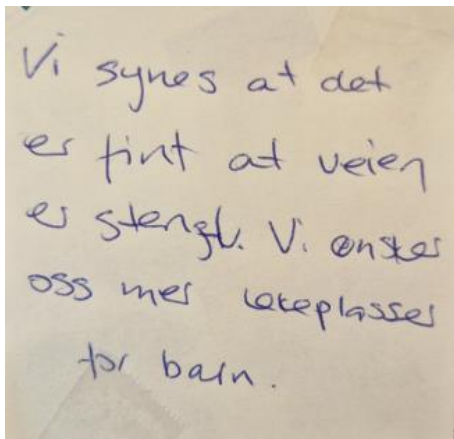 Vi synes at det
er fint at veien
er stengt. Vi ønsker
oss mer lekeplasser
for barn.